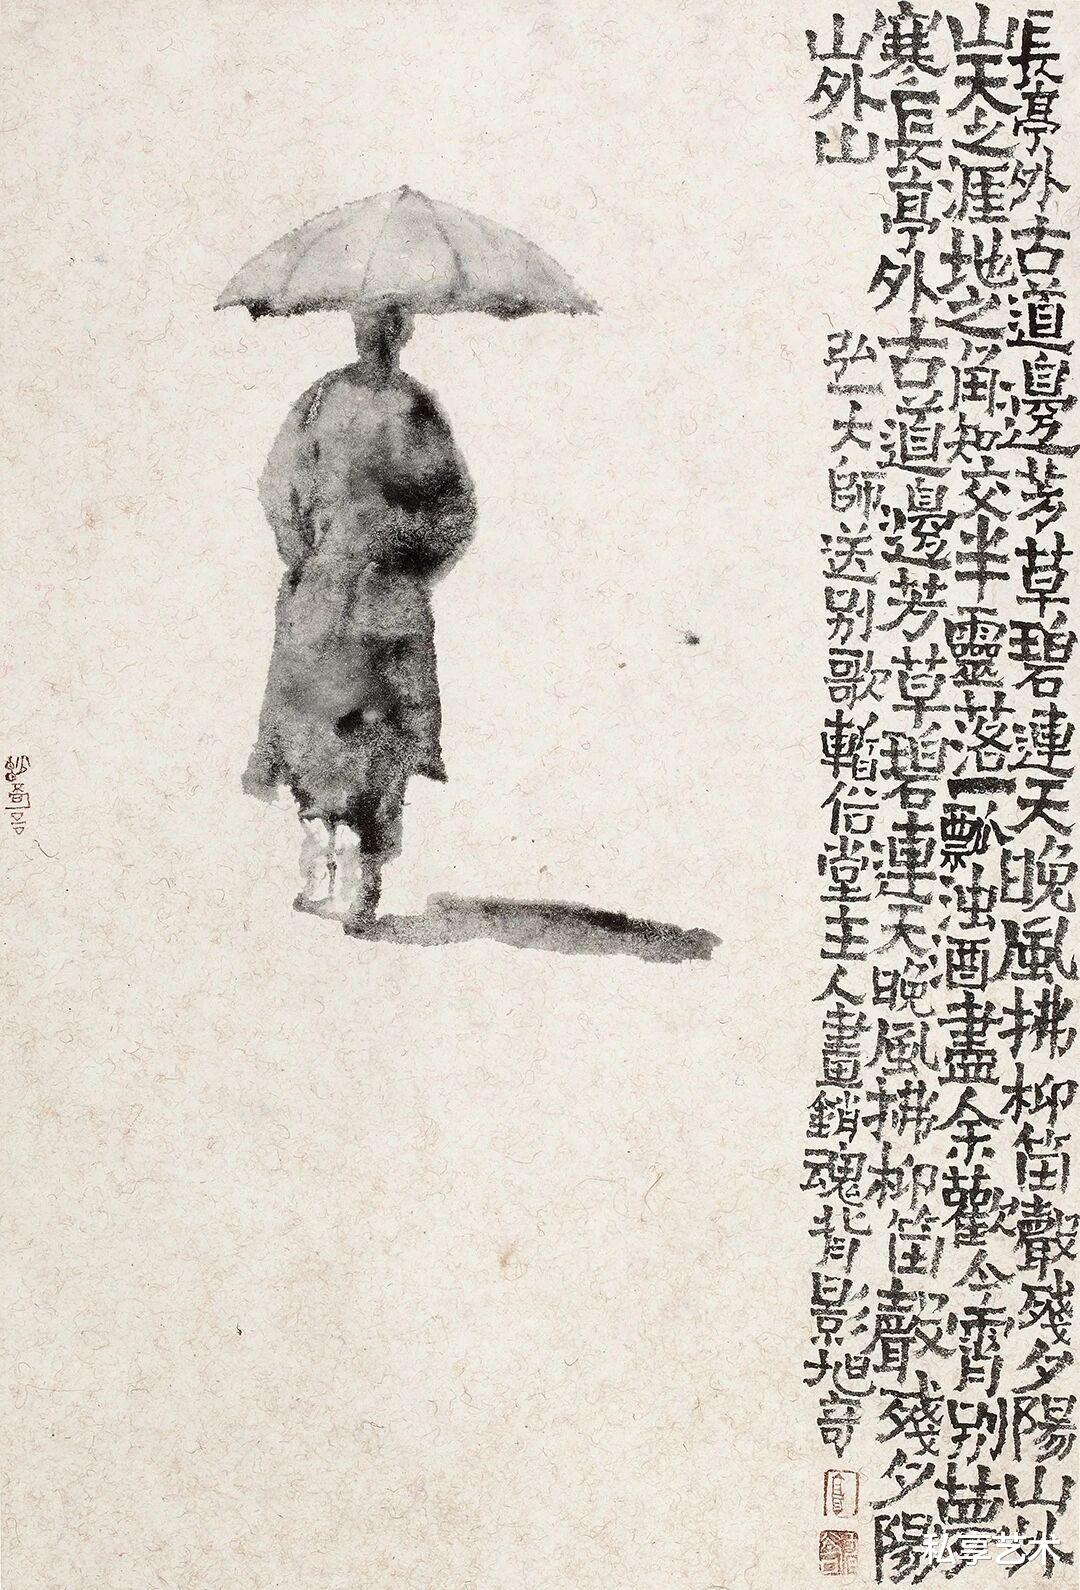 長亭外古道邊芳草碧連天晚風拂柳笛聲殘夕陽山外
山天之涯地之角知交半靈落一瓢浊酒盡余歡今霄别夢
寒長亭外古道邊芳草碧連天晚風拂柳笛聲殘夕陽
山外山
弘一大師送别歌暫堂主人畫銷魂背影旭奇
私享艺术